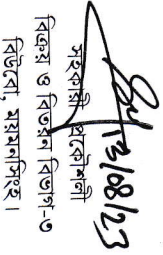 13/08/23
সহকারী প্রকৌশলী
বিক্রয় ও বিতরন বিভাগ-৩
বিউবো, ময়মনসিংহ।